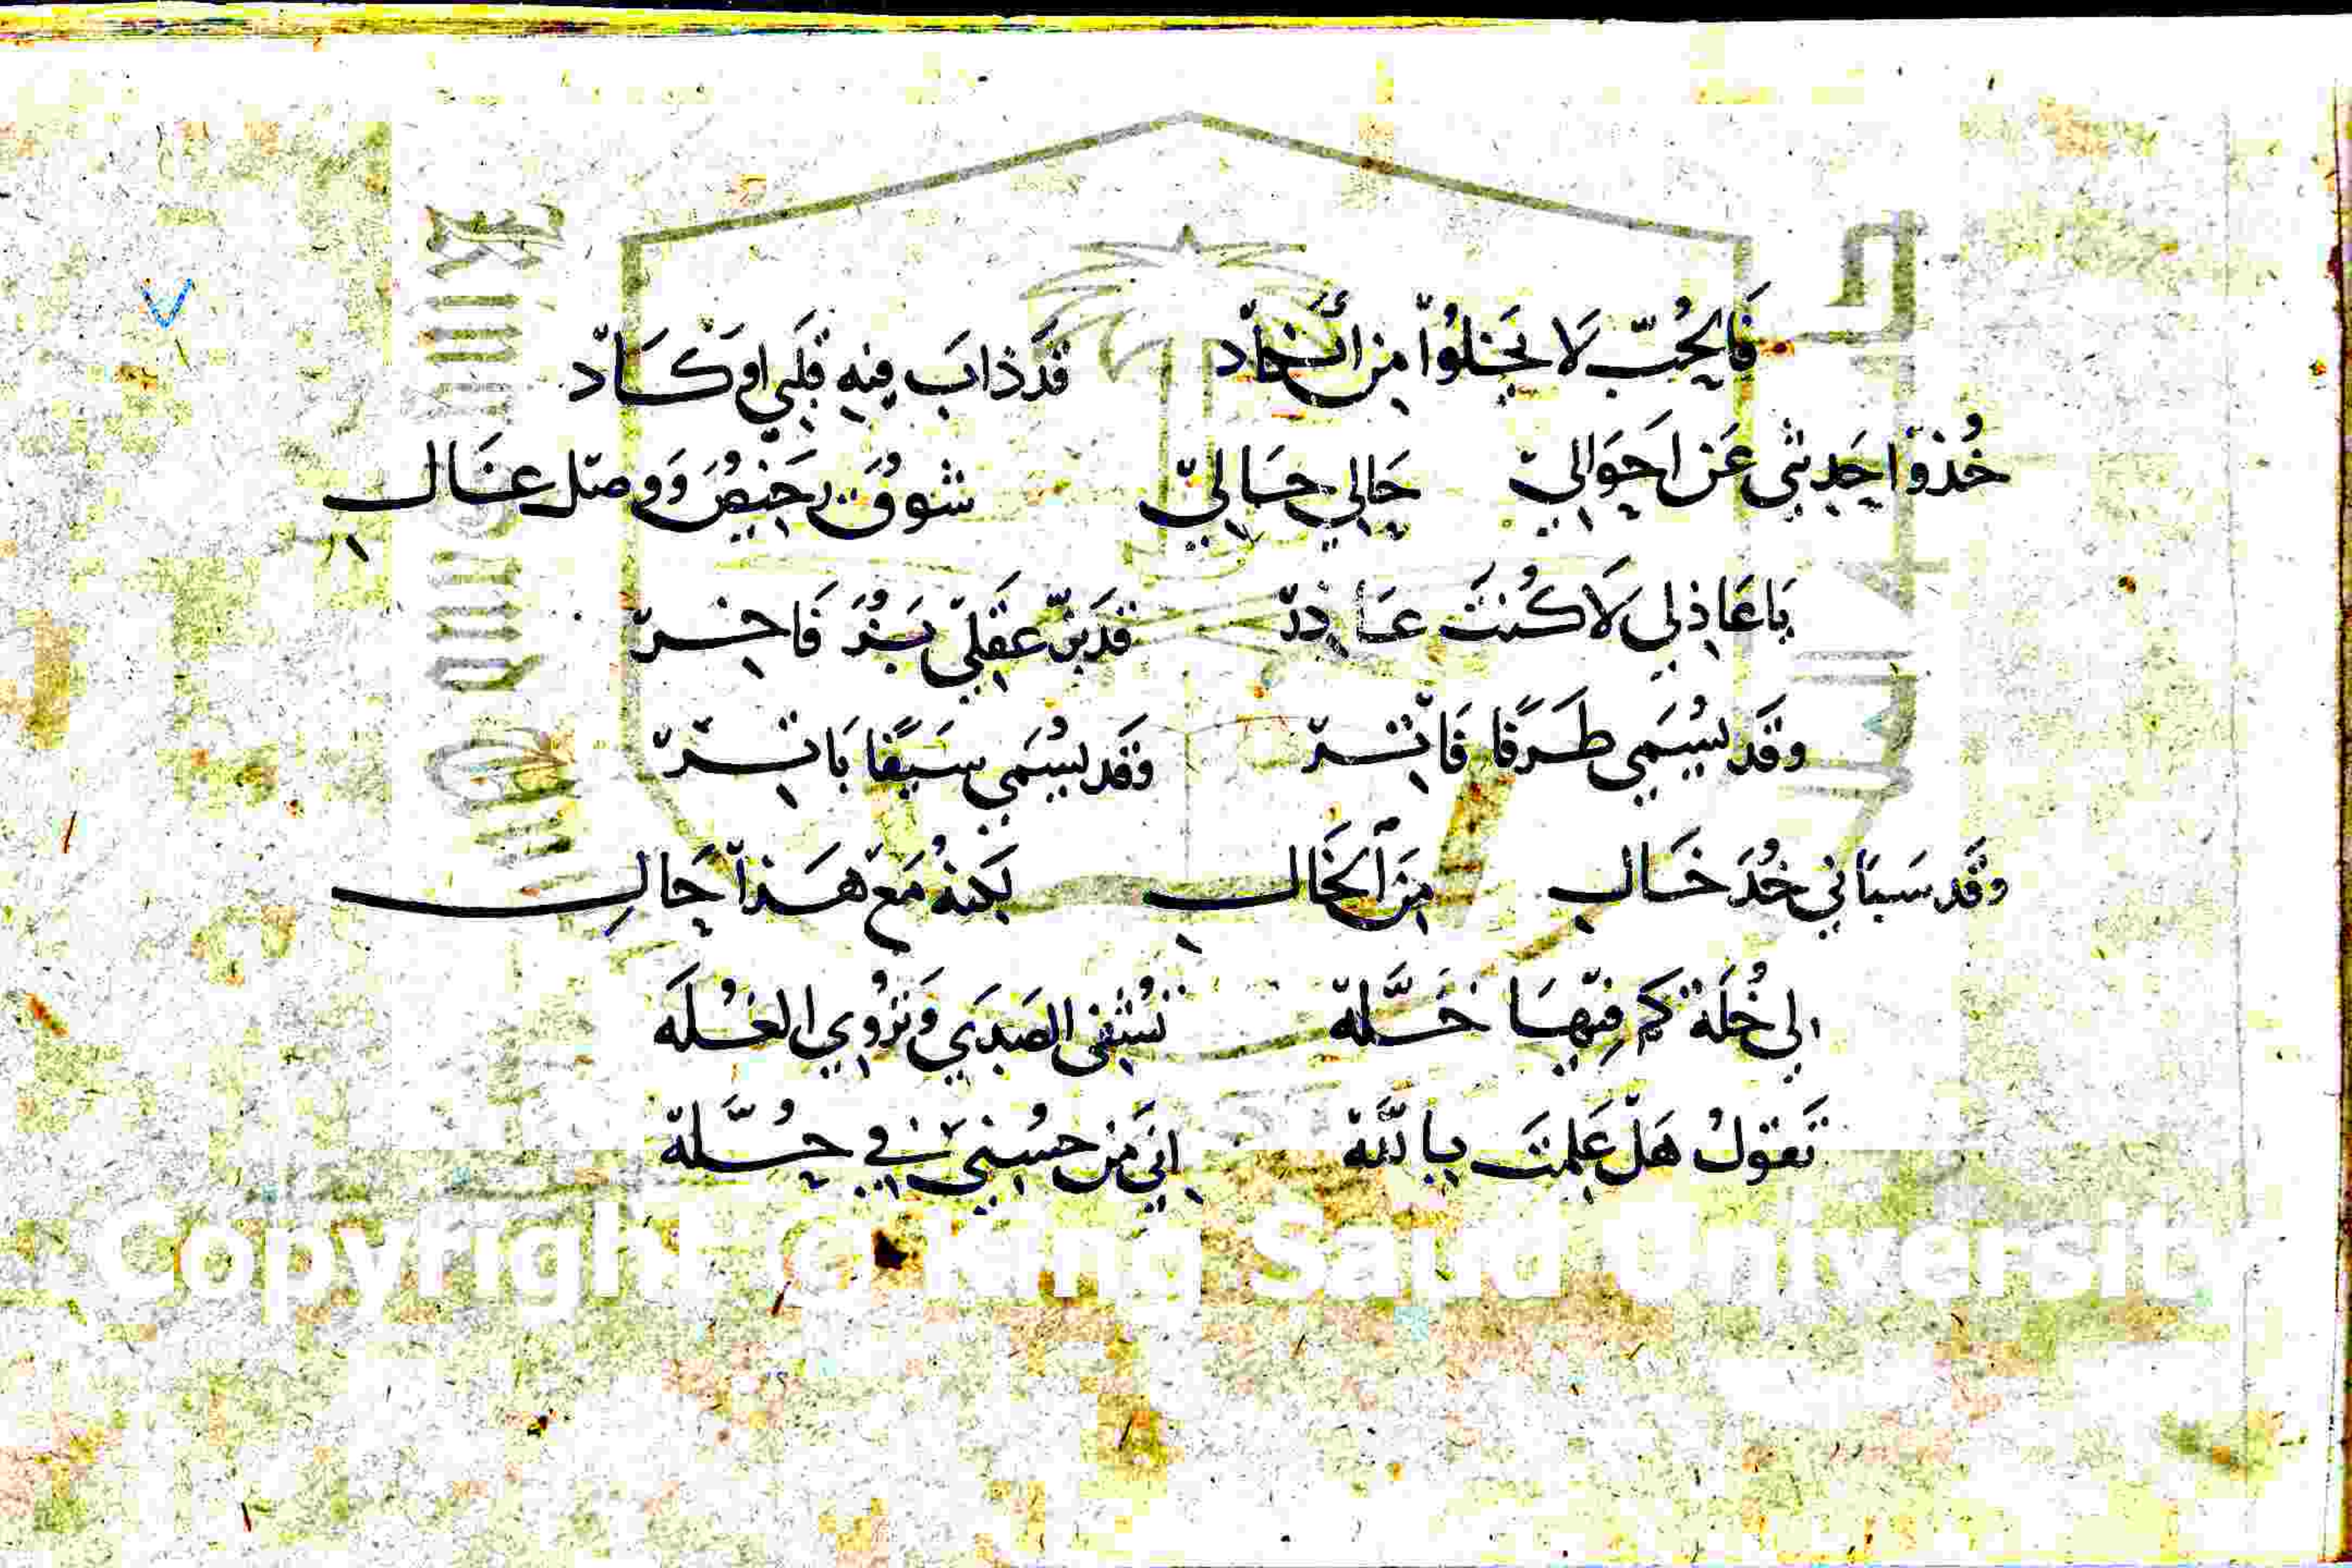 فَالحُبّ لَا يَخلُوا مِن قَد ذابَ فِيهِ قَلبي اوكَاد
خُذوا حَدِيثي عَن اَحوَالي حَالي حَالي شوقٌ رَخيصٌ وَوصل غَال
يَا عَاذِلي لَا كُنتَ عَاذِر قَد بزّ عَقلي بَدرُ فَاخِر
وقَد يُسَمى طَرفًا فَاتِر وَقَد يُسَمى سَيفًا بَاتِر
وقَد سَبَاني خُدَ خَال مِنَ الخَال لَكِنهُ مَع هَذا حَالِ
لي خُلَة كم فِيهَا خَلَّة تُشفي الصَدَي وَتُروي الغُلَه
تَقولُ هَل عَلِمتَ بِاللَّه اِنَي مِن حُسني في حُلَّة
Copyright © King Saud University